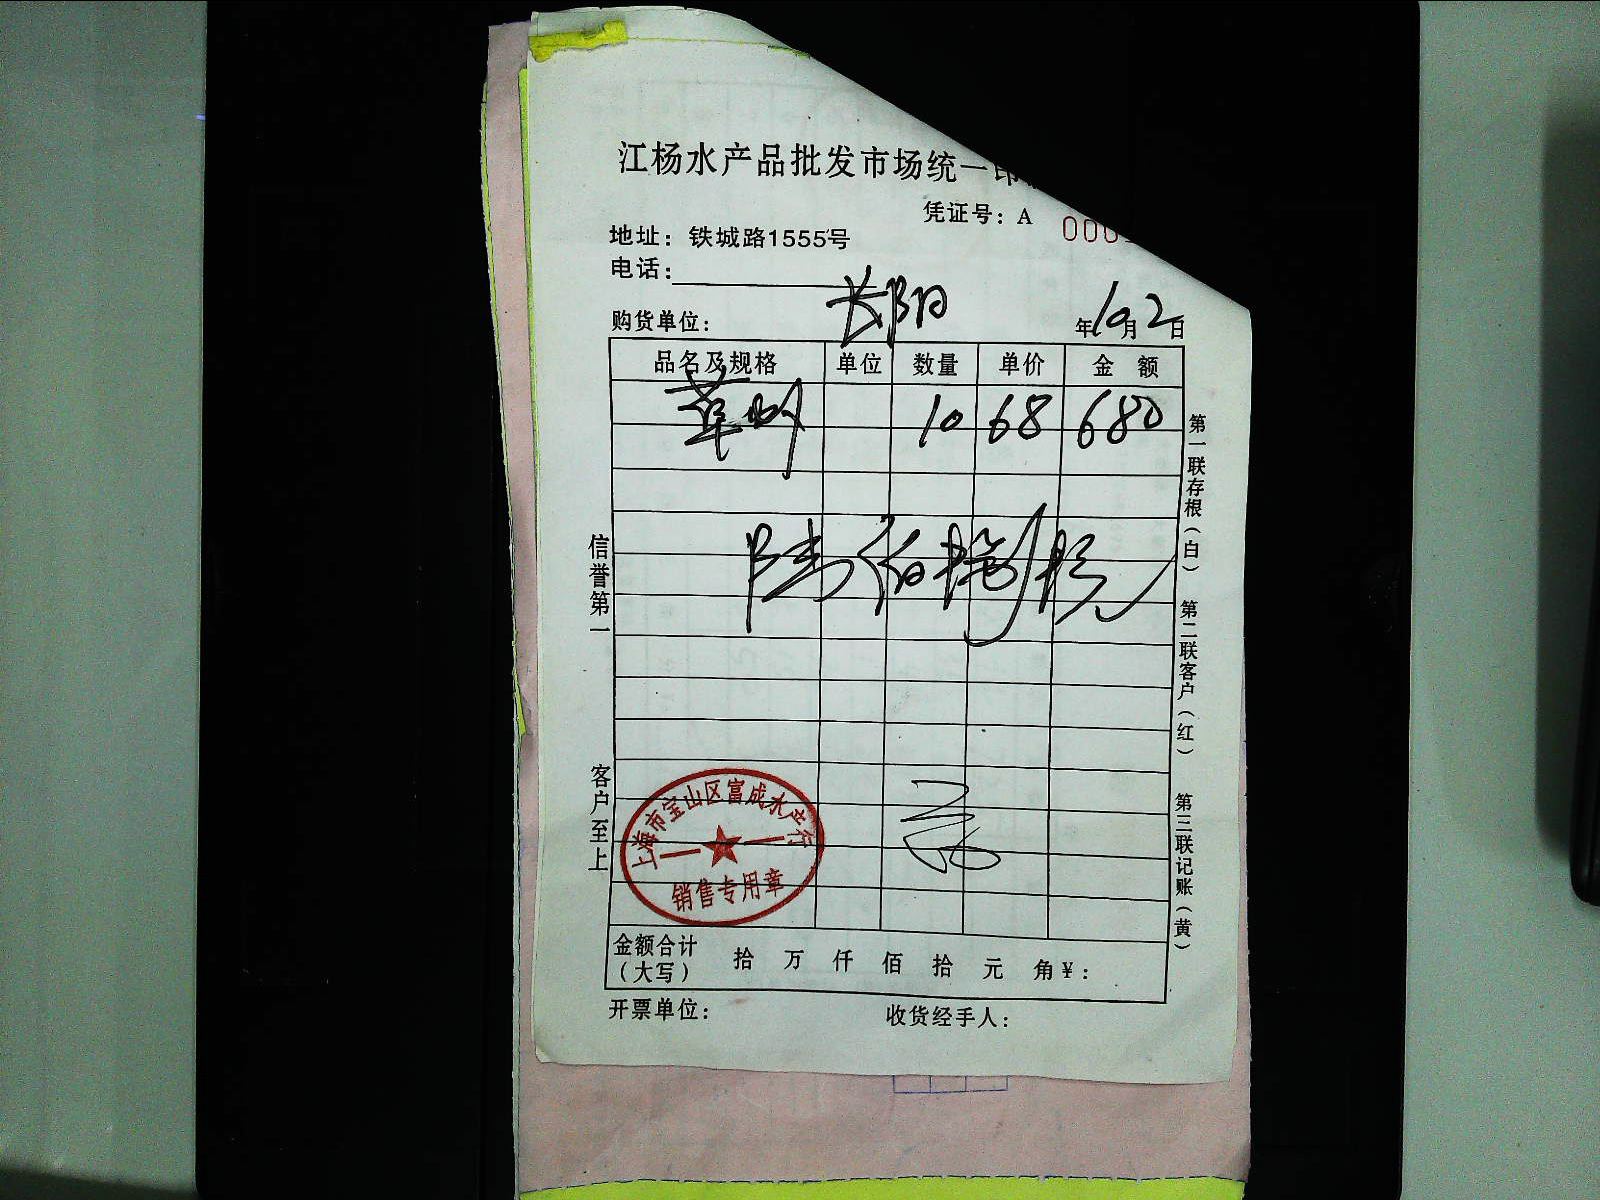 江杨水产品批发市场统一印
凭证号：A 000
地址：铁城路1555号
电话：
购货单位：长阳 年10月2日
品名及规格 单位 数量 单价 金 额
草虾 10 68 680
陆佰捌拾元
信誉第一
客户至上
第一联存根（白） 第二联客户（红） 第三联记账（黄）
上海市宝山区富成水产行
销售专用章
金额合计（大写） 拾 万 仟 佰 拾 元 角 ¥：
开票单位： 收货经手人：